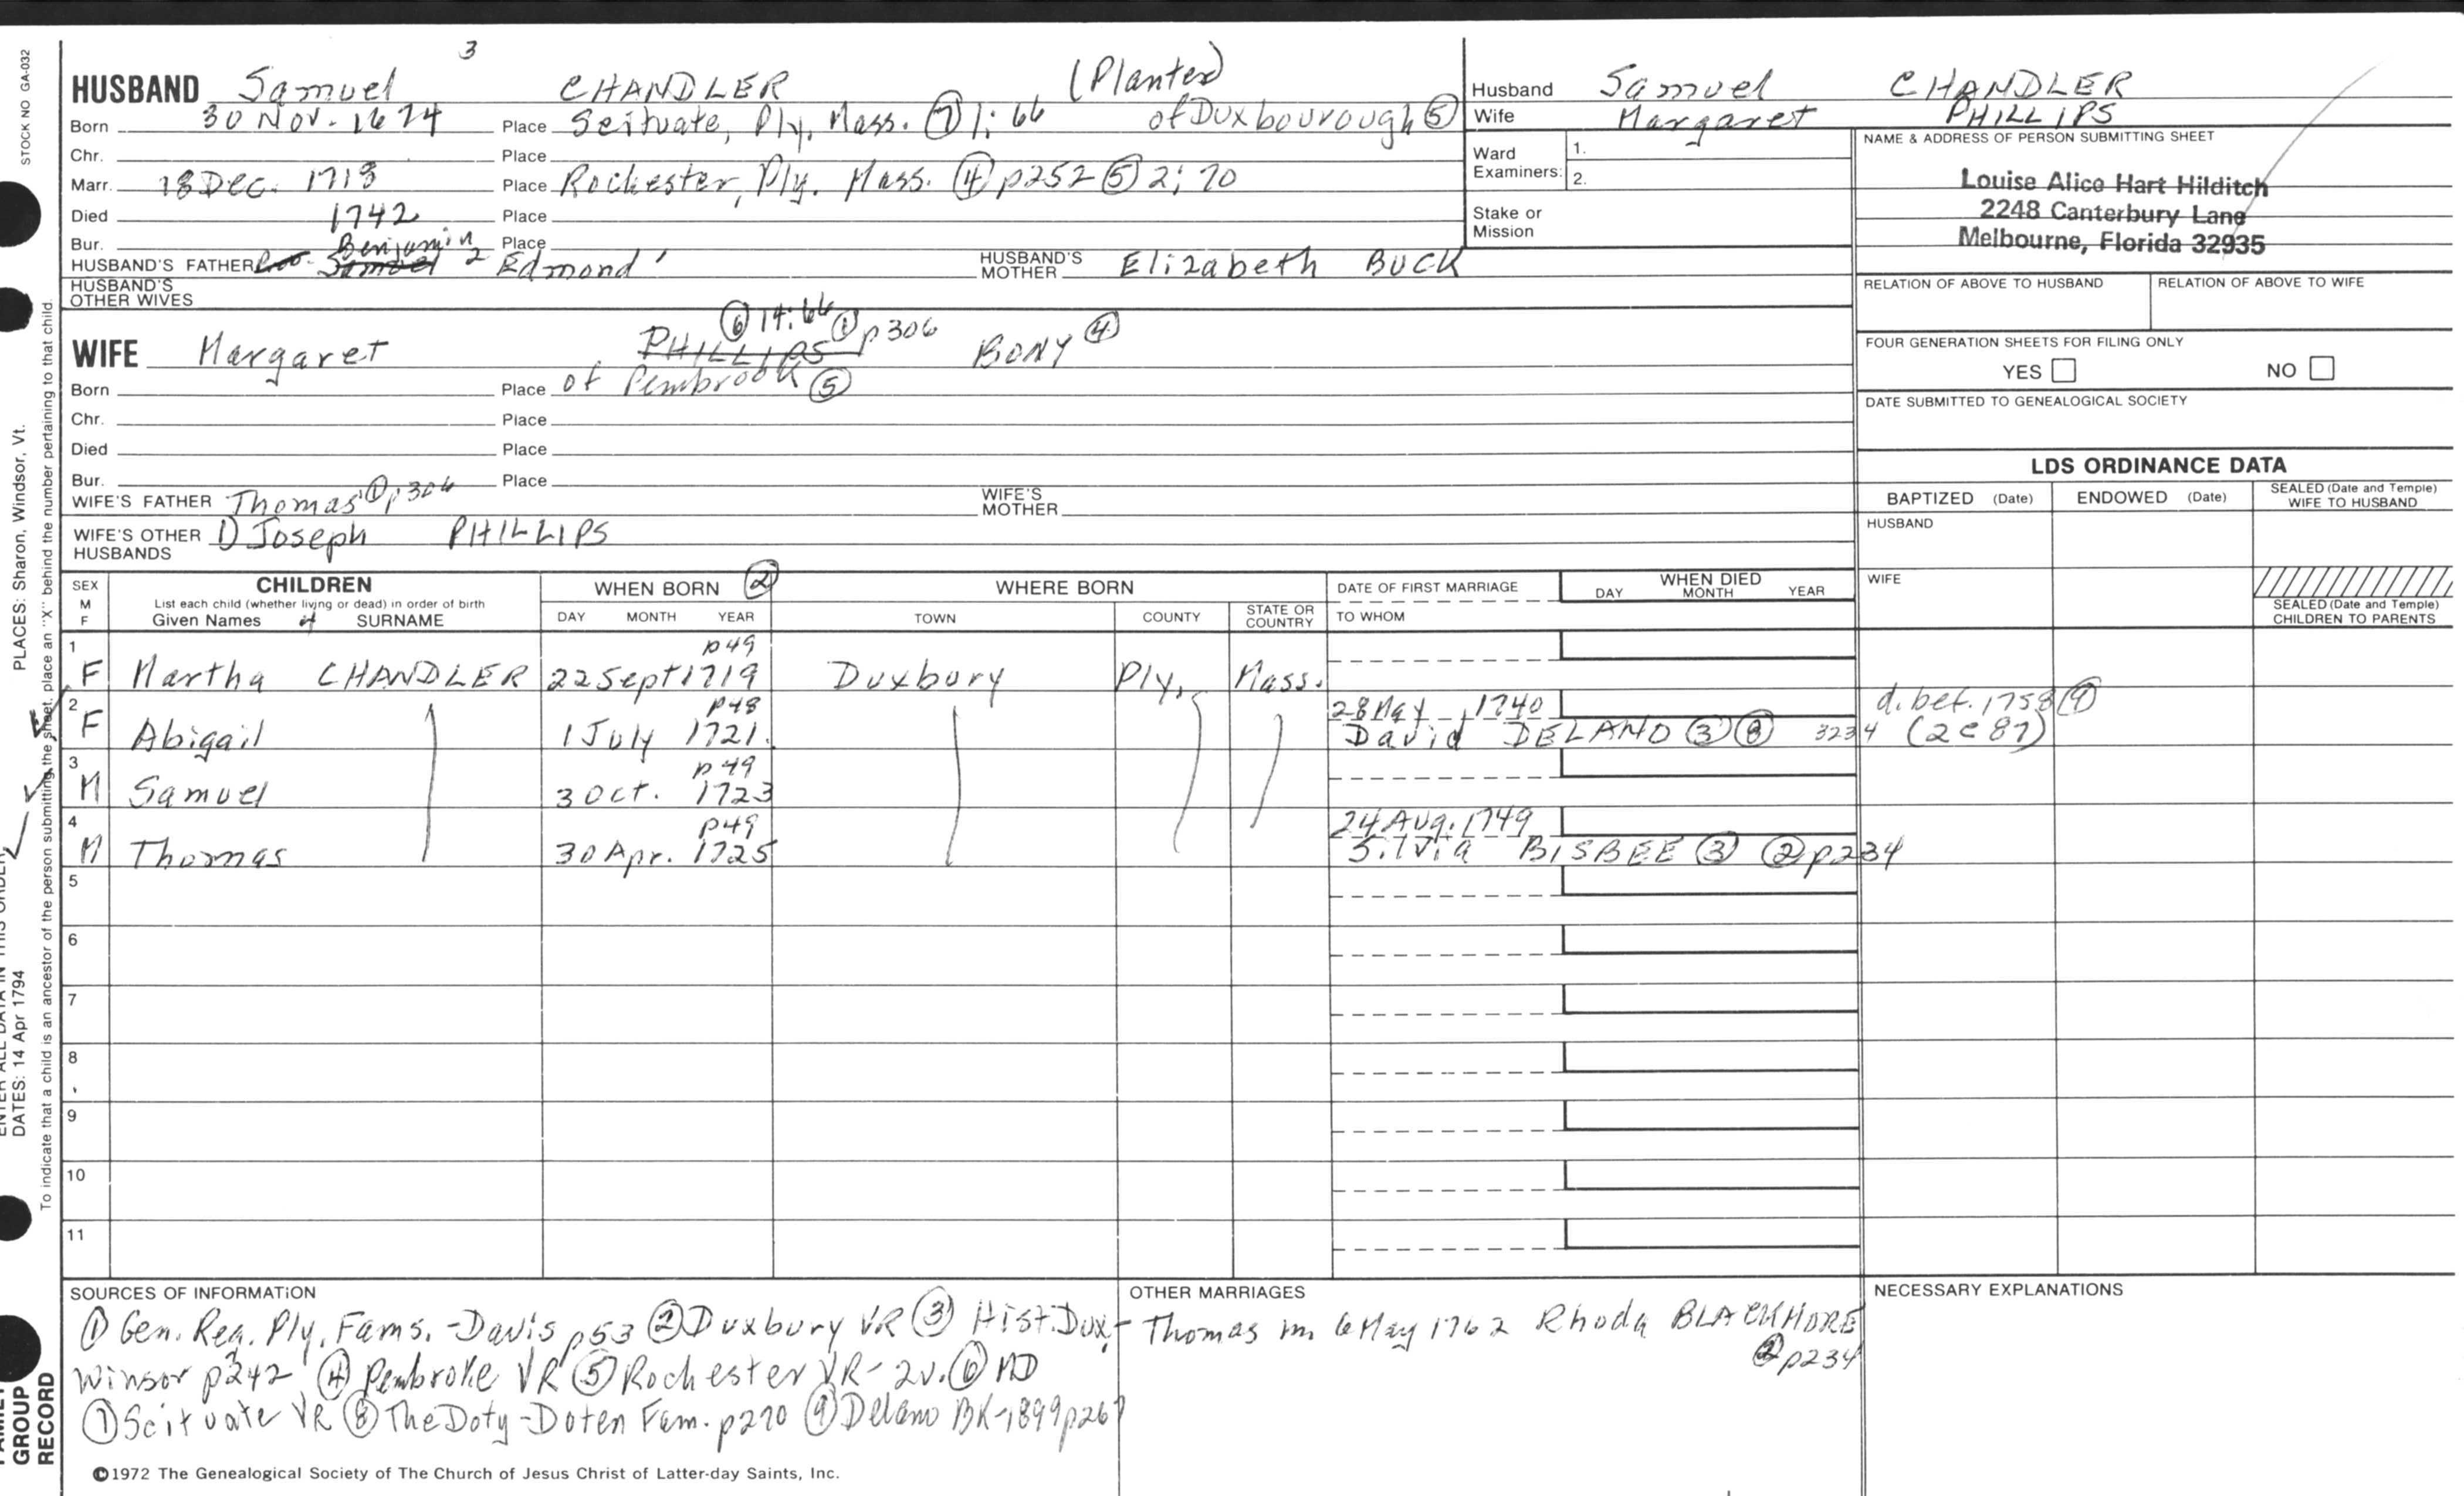 3
HUSBAND Samuel CHANDLER (Planter)
Born 30 Nov. 1674 Place Scituate, Ply, Mass. ⑦ 1:66 of Duxbourough ⑤
Chr. Place
Marr. 18 Dec. 1718 Place Rochester, Ply. Mass. ④ p252 ⑤ 2:70
Died 1742 Place
Bur. Place
HUSBAND'S FATHER Samuel Benjamin 2 Edmond' HUSBAND'S MOTHER Elizabeth BUCK
HUSBAND'S OTHER WIVES
⑥ 14:66
WIFE Margaret PHILLIPS ① p306 BONY ④
Born Place of Pembrook ⑤
Chr. Place
Died Place
Bur. Place
WIFE'S FATHER Thomas ① p306 WIFE'S MOTHER
WIFE'S OTHER HUSBANDS 1) Joseph PHILLIPS
Husband Samuel CHANDLER
Wife Margaret PHILLIPS
Ward Examiners: 1.
2.
Stake or Mission
NAME & ADDRESS OF PERSON SUBMITTING SHEET
Louise Alice Hart Hilditch
2248 Canterbury Lane
Melbourne, Florida 32935
RELATION OF ABOVE TO HUSBAND RELATION OF ABOVE TO WIFE
FOUR GENERATION SHEETS FOR FILING ONLY
YES NO
DATE SUBMITTED TO GENEALOGICAL SOCIETY
LDS ORDINANCE DATA
BAPTIZED (Date) ENDOWED (Date) SEALED (Date and Temple) WIFE TO HUSBAND
HUSBAND
WIFE
SEALED (Date and Temple) CHILDREN TO PARENTS
SEX M F CHILDREN WHEN BORN ② WHERE BORN DATE OF FIRST MARRIAGE WHEN DIED
List each child (whether living or dead) in order of birth
Given Names SURNAME DAY MONTH YEAR TOWN COUNTY STATE OR COUNTRY TO WHOM DAY MONTH YEAR
1 p49
F Martha CHANDLER 22 Sept 1719 Duxbury Ply, Mass.
2 p48 28 May 1740 d. bef. 1758 ⑨
F Abigail 1 July 1721. David DELANO ③ ⑧ 3234 (2e87)
3 p49
M Samuel 3 Oct. 1723
4 p49 24 Aug. 1749
M Thomas 30 Apr. 1725 Silvia BISBEE ③ ② p234
5
6
7
8
9
10
11
SOURCES OF INFORMATION
① Gen. Reg. Ply. Fams. - Davis p53 ② Duxbury VR ③ Hist. Dux -
Winsor p242 ④ Pembroke VR ⑤ Rochester VR - 2v. ⑥ MD
⑦ Scituate VR ⑧ The Doty-Doten Fam. p270 ⑨ Delano BK-1899 p267
OTHER MARRIAGES
Thomas m 6 May 1762 Rhoda BLACKMORE
② p234
NECESSARY EXPLANATIONS
©1972 The Genealogical Society of The Church of Jesus Christ of Latter-day Saints, Inc.
STOCK NO GA-032
PLACES: Sharon, Windsor, Vt.
DATES: 14 Apr 1794
To indicate that a child is an ancestor of the person submitting the sheet, place an "X" behind the number pertaining to that child.
ENTER ALL DATA IN THIS ORDER
FAMILY
GROUP
RECORD